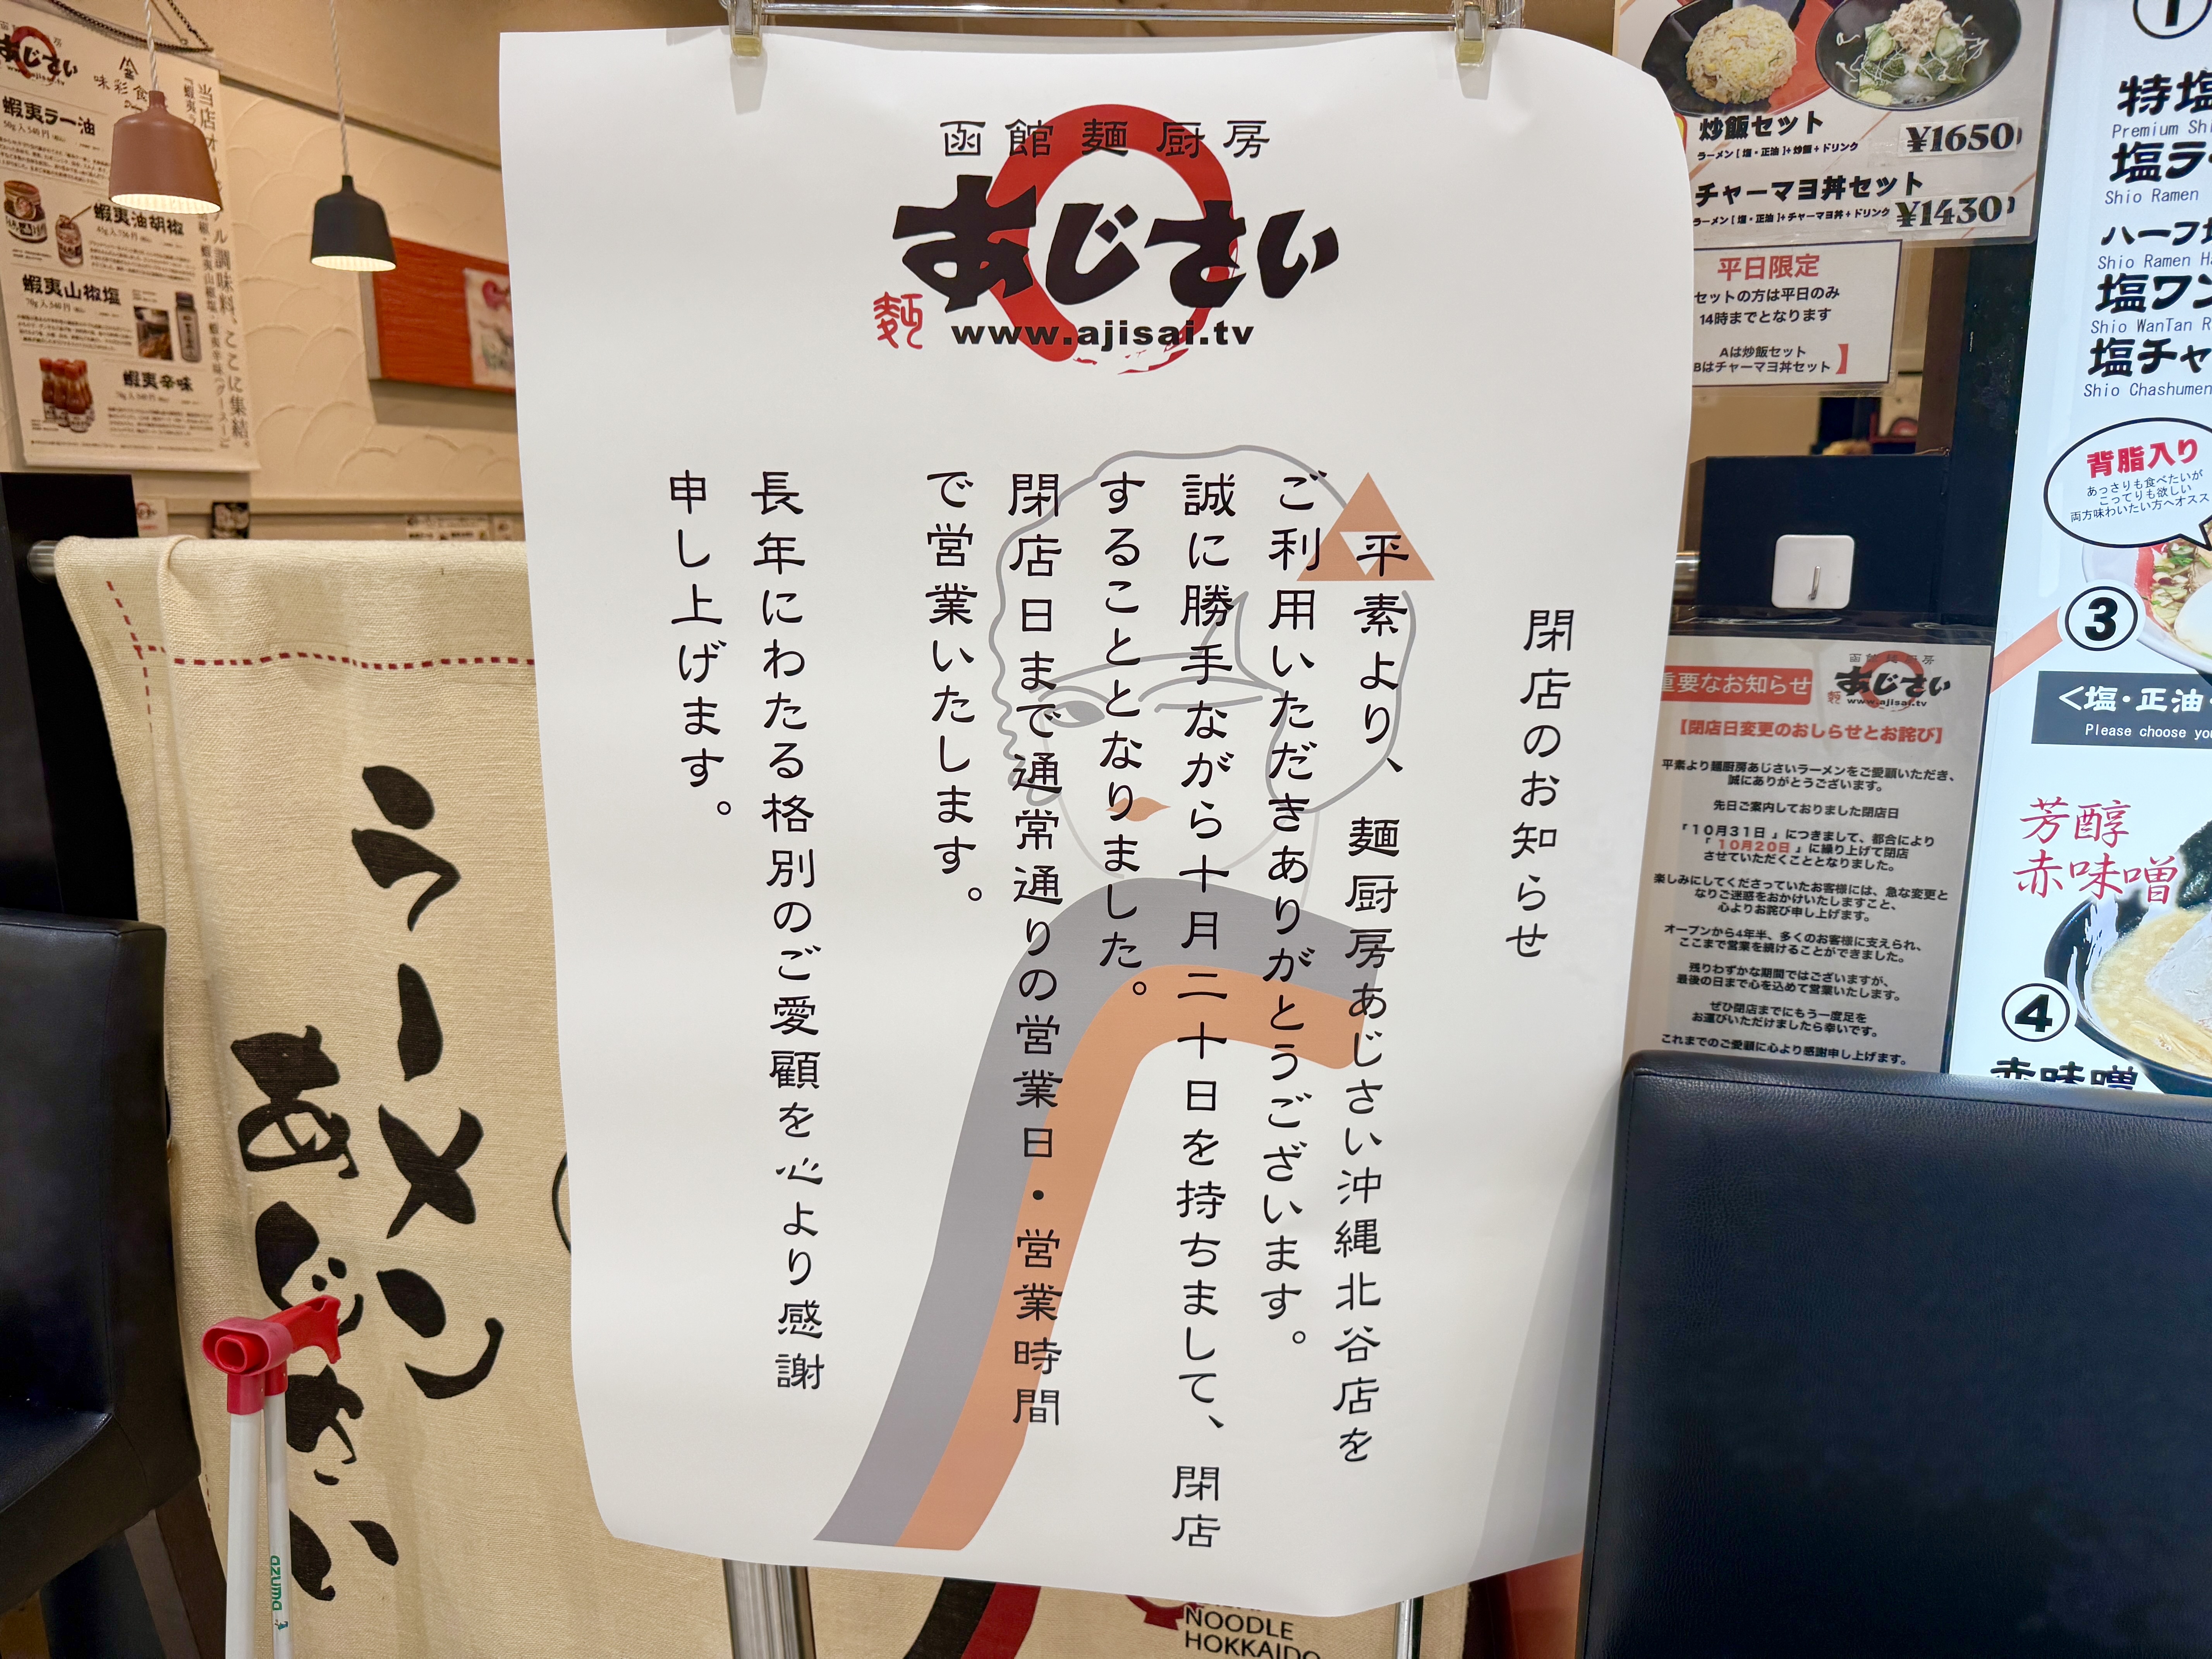 函館麺厨房
あじさい
麺
www.ajisai.tv
閉店のお知らせ
平素より、麺厨房あじさい沖縄北谷店を
ご利用いただきありがとうございます。
誠に勝手ながら十月二十日を持ちまして、閉店
することとなりました。
閉店日まで通常通りの営業日・営業時間
で営業いたします。
長年にわたる格別のご愛顧を心より感謝
申し上げます。
あじさい
味彩
蝦夷ラー油
蝦夷油胡椒
蝦夷山椒塩
蝦夷辛味
ラーメン
あじさい
azuma
NOODLE
HOKKAIDO
炒飯セット
ラーメン[塩・正油]+炒飯+ドリンク
¥1650
チャーマヨ丼セット
ラーメン[塩・正油]+チャーマヨ丼+ドリンク
¥1430
平日限定
セットの方は平日のみ
14時までとなります
Aは炒飯セット
Bはチャーマヨ丼セット】
重要なお知らせ
函館麺厨房
あじさい
www.ajisai.tv
【閉店日変更のおしらせとお詫び】
平素より麺厨房あじさいラーメンをご愛顧いただき、
誠にありがとうございます。
先日ご案内しておりました閉店日
「10月31日」につきまして、都合により
「10月20日」に繰り上げて閉店
させていただくこととなりました。
楽しみにしてくださっていたお客様には、急な変更と
なりご迷惑をおかけいたしますこと、
心よりお詫び申し上げます。
オープンから4年半、多くのお客様に支えられ、
ここまで営業を続けることができました。
残りわずかな期間ではございますが、
最後の日まで心を込めて営業いたします。
ぜひ閉店までにもう一度足を
お運びいただけましたら幸いです。
これまでのご愛顧に心より感謝申し上げます。
①
特塩
Premium Shi
塩ラ
Shio Ramen
ハーフ塩
Shio Ramen Ha
塩ワン
Shio WanTan R
塩チャ
Shio Chashumen
背脂入り
あっさりも食べたいが
こってりも欲しい
両方味わいたい方へオスス
③
<塩・正油・
Please choose you
芳醇
赤味噌
④
赤味噌